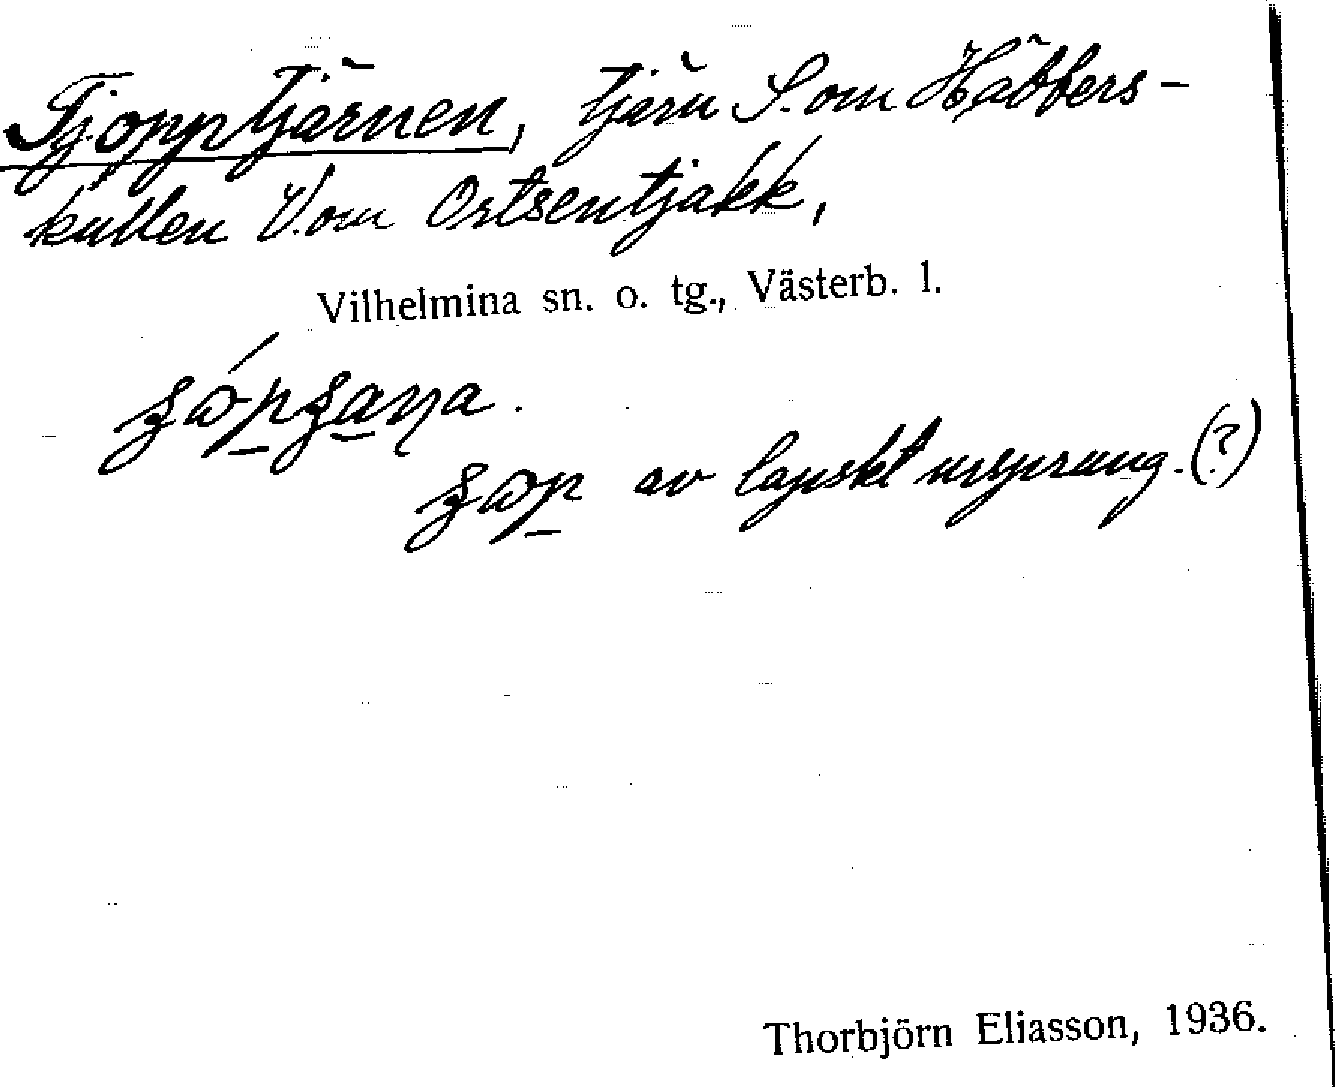 Tjopptjärnen, tjärn S. om Häbbers-
kullen V. om Ortsentjakk,
Vilhelmina sn. o. tg., Västerb. l.
av lapskt ursprung. (?)
Thorbjörn Eliasson, 1936.